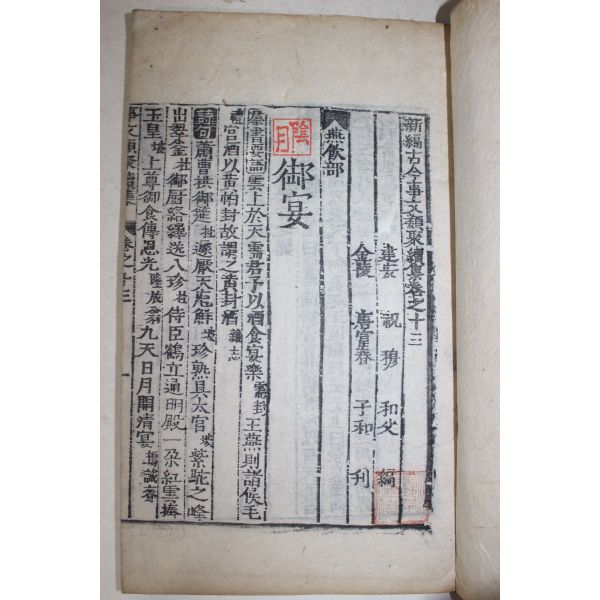 新編古今事文類聚續集卷之十三
建安 祝穆 和父 編
金陵 唐富春 子和 刊
燕飲部
御宴
羣書要語雲上於天需君子以酒食宴樂需封王燕則諸侯毛
禮官酒以黃帕封故謂之黃封酒雜志
詩句蕭曹拱御筵杜邃厭天庖鮮坡珍熟具大官坡紫駝之峰
出翠釜杜御厨絡繹送八珍杜侍臣鶴立通明殿一朶紅雲捧
玉皇坡上尊御食傳恩光陸放翁九天日月開清宴楊誠齋
事文類聚續集 卷之十三